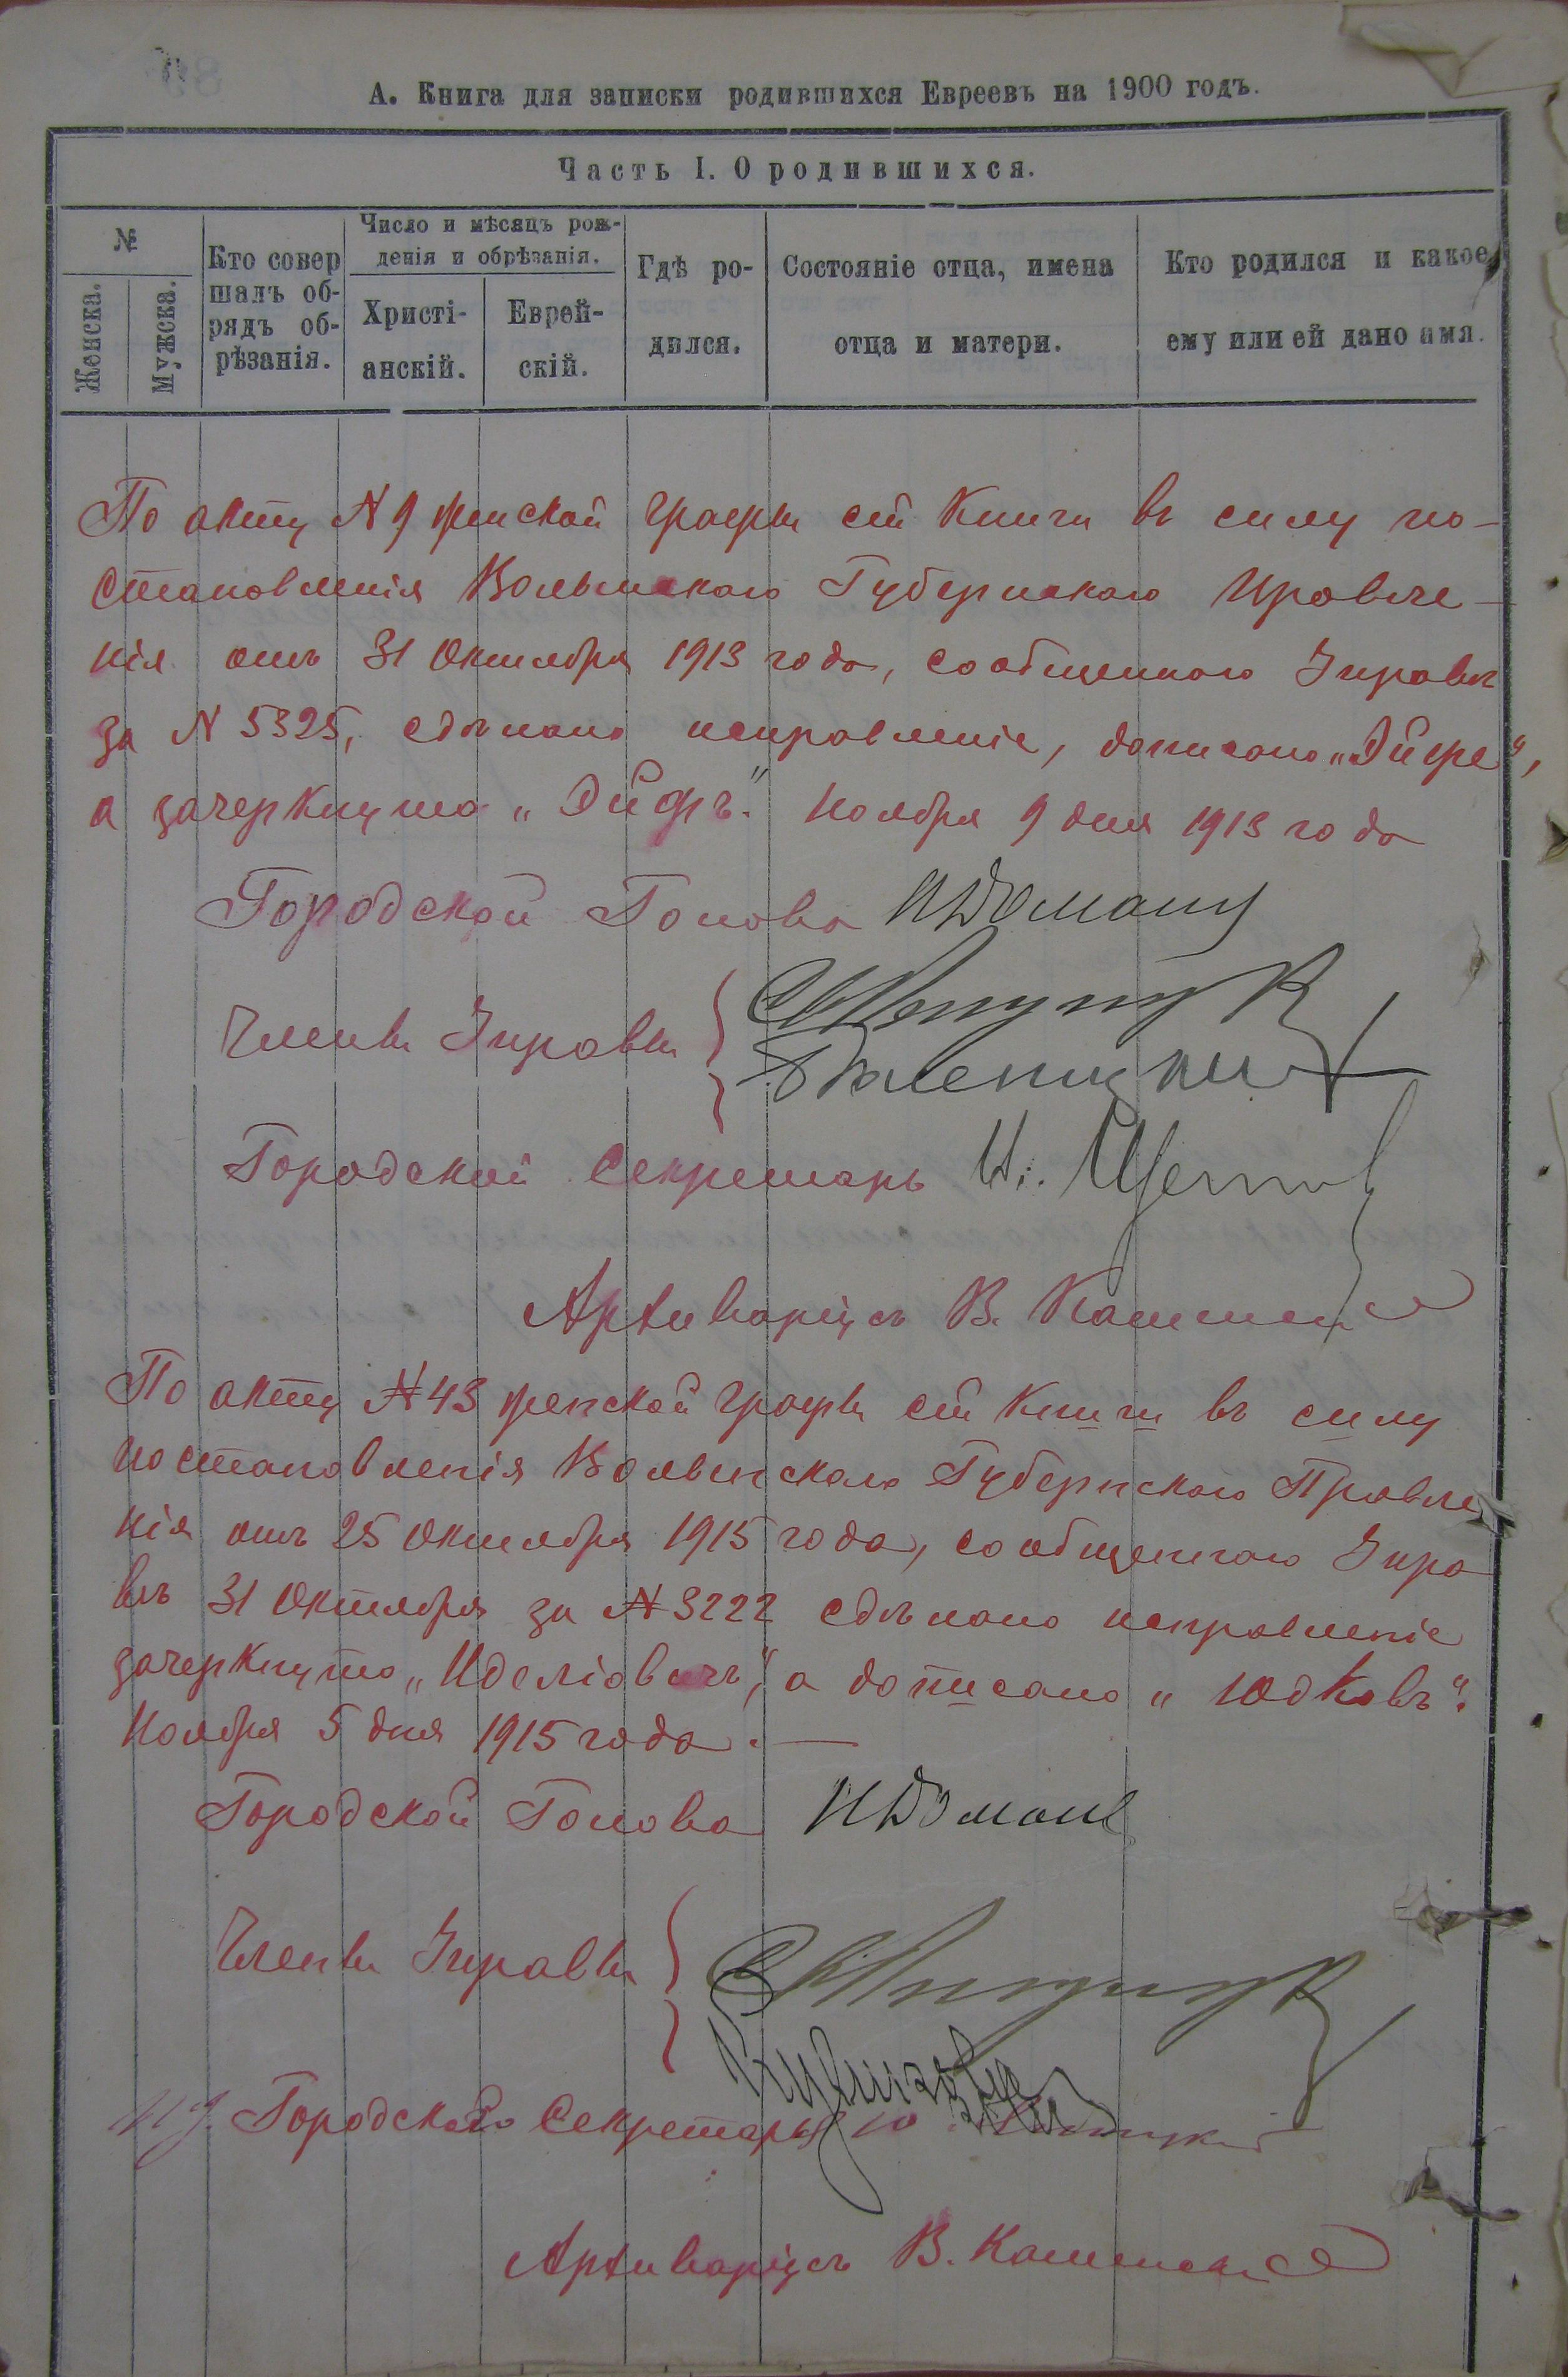 А. Книга для записки родившихся Евреевъ на 1900 годъ.
Часть I. О родившихся.
№
Женска.
Мужска.
Кто совер
шалъ об-
рядъ об-
рѣзанія.
Число и мѣсяцъ рож-
денія и обрѣзанія.
Христі-
анскій.
Еврей-
скій.
Гдѣ ро-
дился.
Состояніе отца, имена
отца и матери.
Кто родился и какое
ему или ей дано имя.
По акту № 9 женской графы сей Книги въ силу по-
становленія Волынскаго Губернскаго Правле-
нія отъ 31 Октября 1913 года, сообщеннаго Управѣ
за № 5325, сдѣлано исправленіе, дописано „Эйдре",
а зачеркнуто „Эйдръ". Ноября 9 дня 1913 года
Городской Голова
Члены Управы
Городской Секретарь
Архиваріусъ В.
По акту № 43 женской графы сей Книги въ силу
постановленія Волынскаго Губернскаго Правле
нія отъ 25 Октября 1915 года, сообщеннаго Упра
вѣ 31 Октября за № 3222 сдѣлано исправленіе
зачеркнуто „Иделіовичъ", а дописано „Юдковъ".
Ноября 5 дня 1915 года.—
Городской Голова
Члены Управы
И д. Городского Секретаря
Архиваріусъ В.